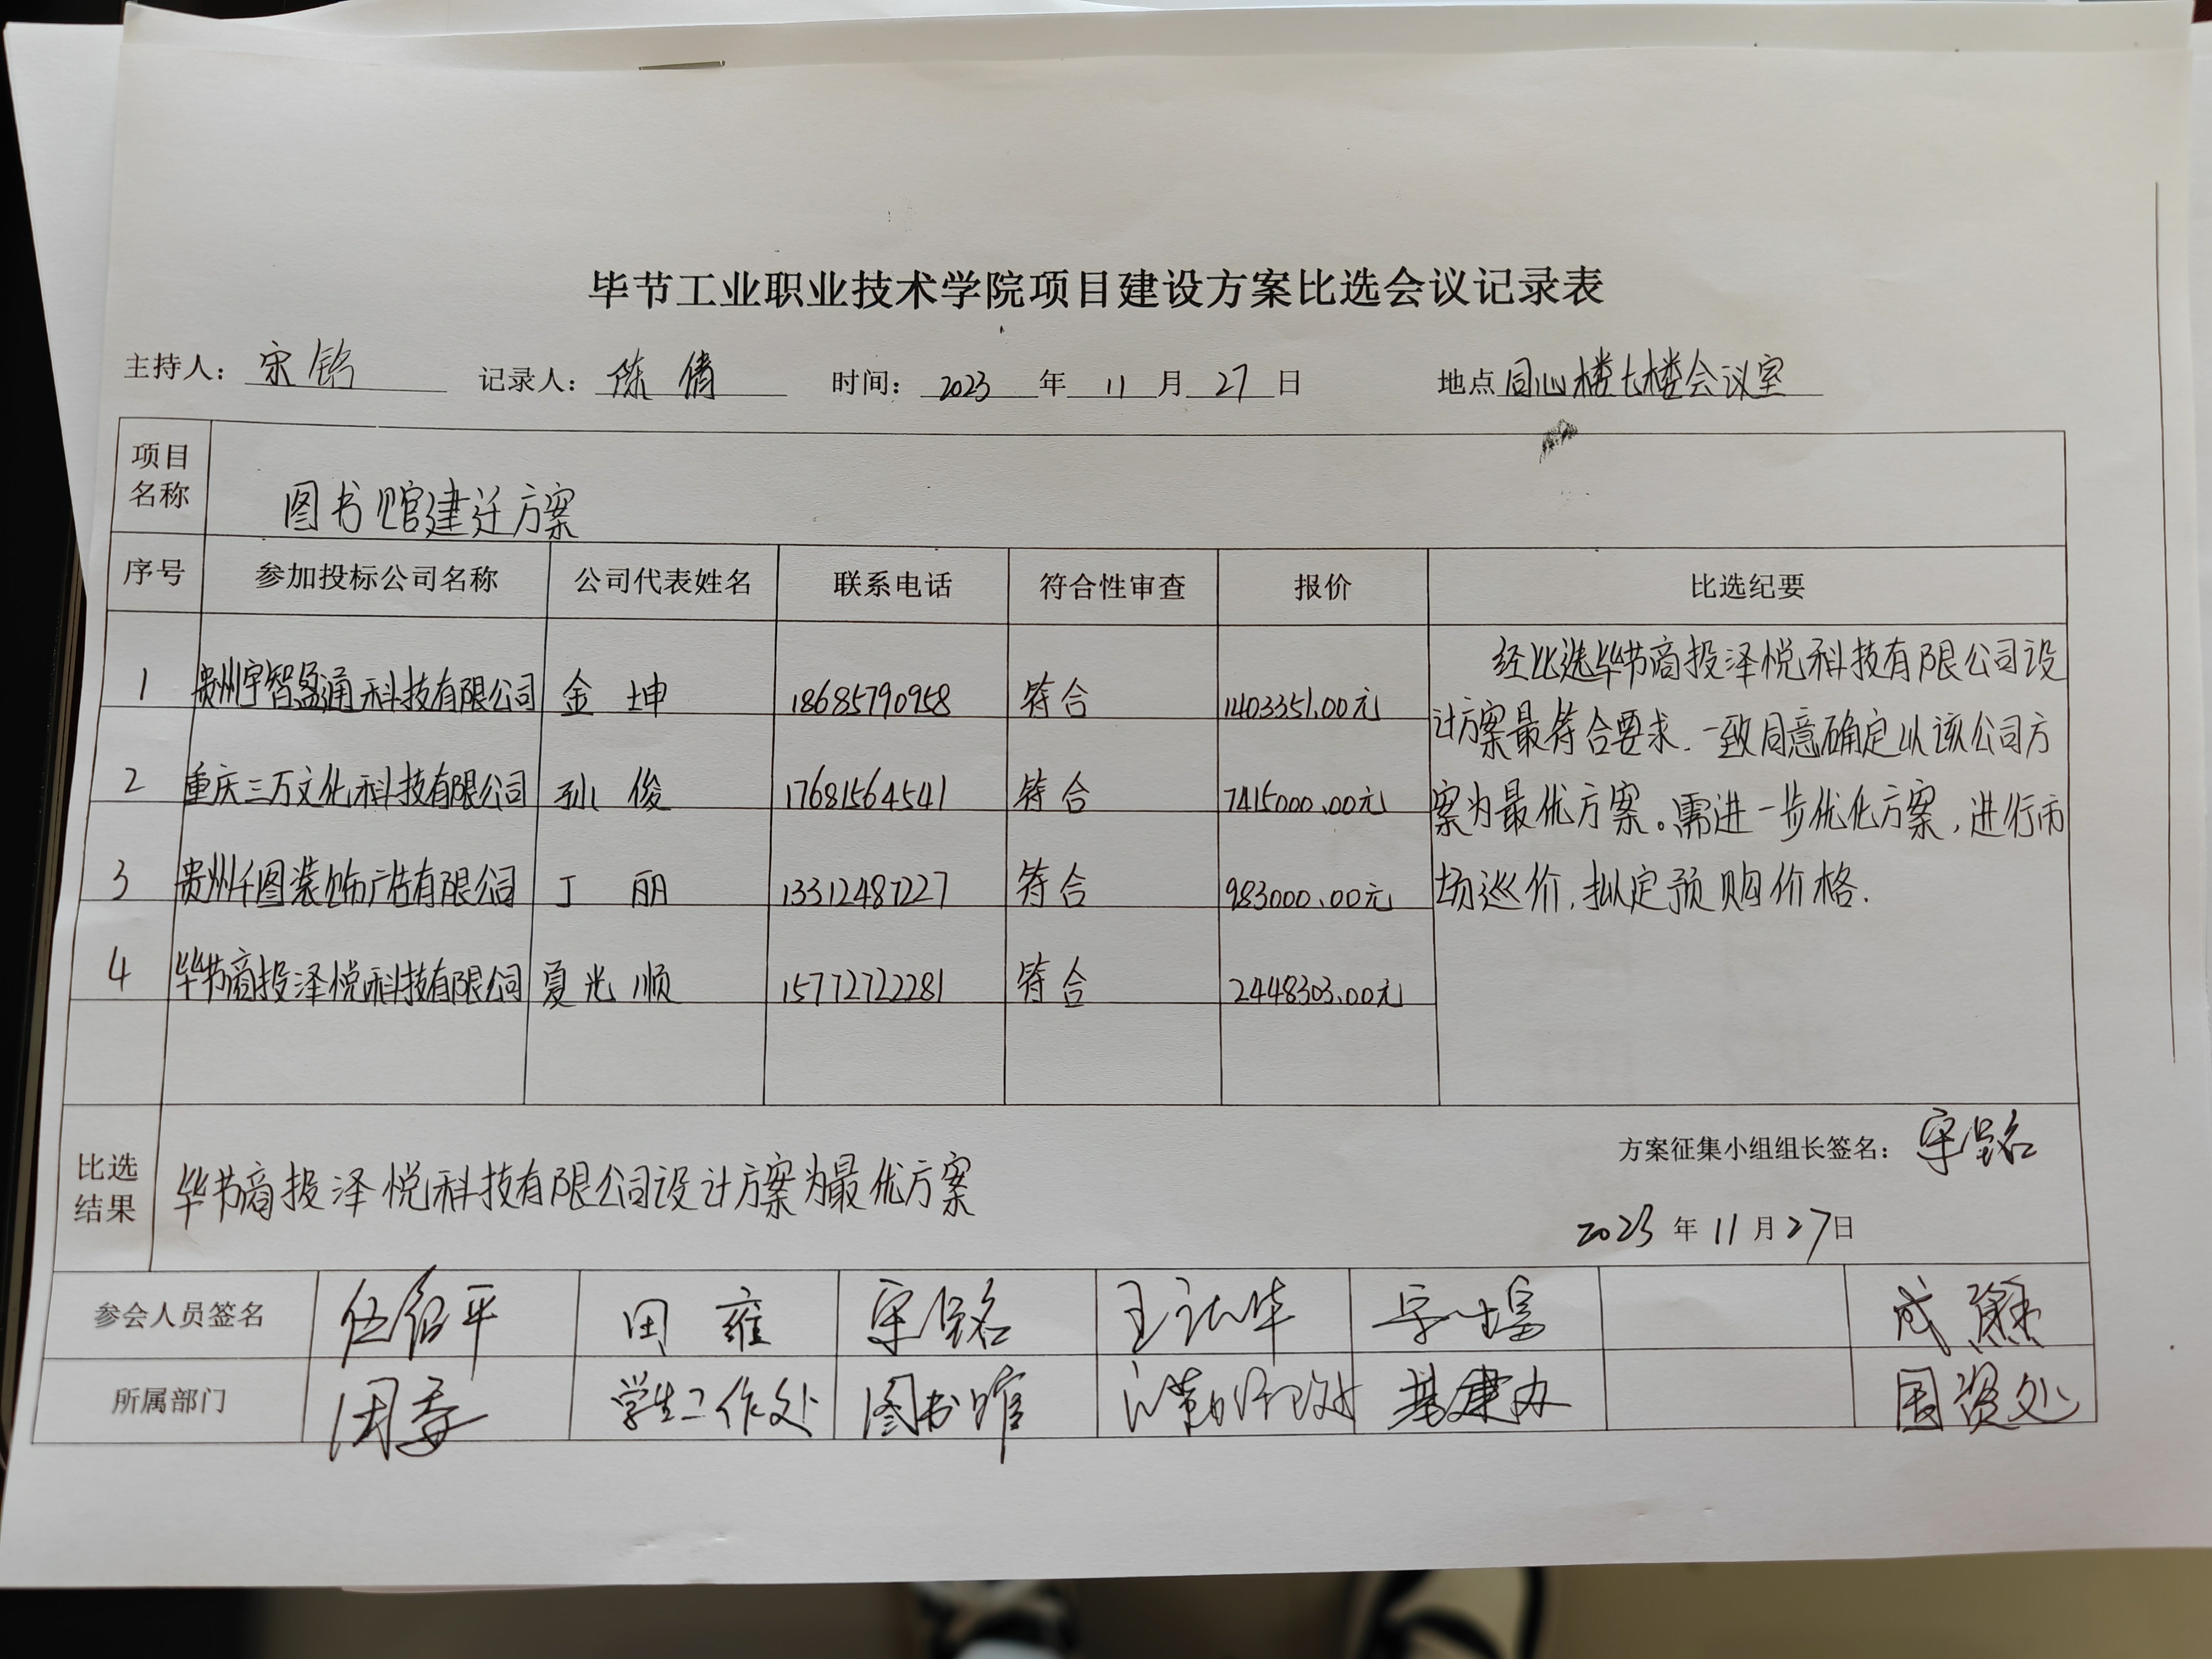 毕节工业职业技术学院项目建设方案比选会议记录表
主持人：宋铭 记录人：陈倩 时间：2023年11月27日 地点同心楼七楼会议室
项目名称 图书馆建迁方案
序号 参加投标公司名称 公司代表姓名 联系电话 符合性审查 报价 比选纪要
1 贵州宇智盈通科技有限公司 金坤 18685790958 符合 1403351.00元
2 重庆三万文化科技有限公司 孙俊 17681564541 符合 7415000.00元
3 贵州千图装饰广告有限公司 丁丽 13312487227 符合 983000.00元
4 毕节商投泽悦科技有限公司 夏光顺 15772722281 符合 2448303.00元
经比选毕节商投泽悦科技有限公司设
计方案最符合要求.一致同意确定以该公司方
案为最优方案。需进一步优化方案,进行市
场巡价,拟定预购价格.
比选结果 毕节商投泽悦科技有限公司设计方案为最优方案
方案征集小组组长签名：宋铭
2023年11月27日
参会人员签名 伍绍平 田雍 宋铭
所属部门 团委 学生工作处 图书馆 基建办 国资处